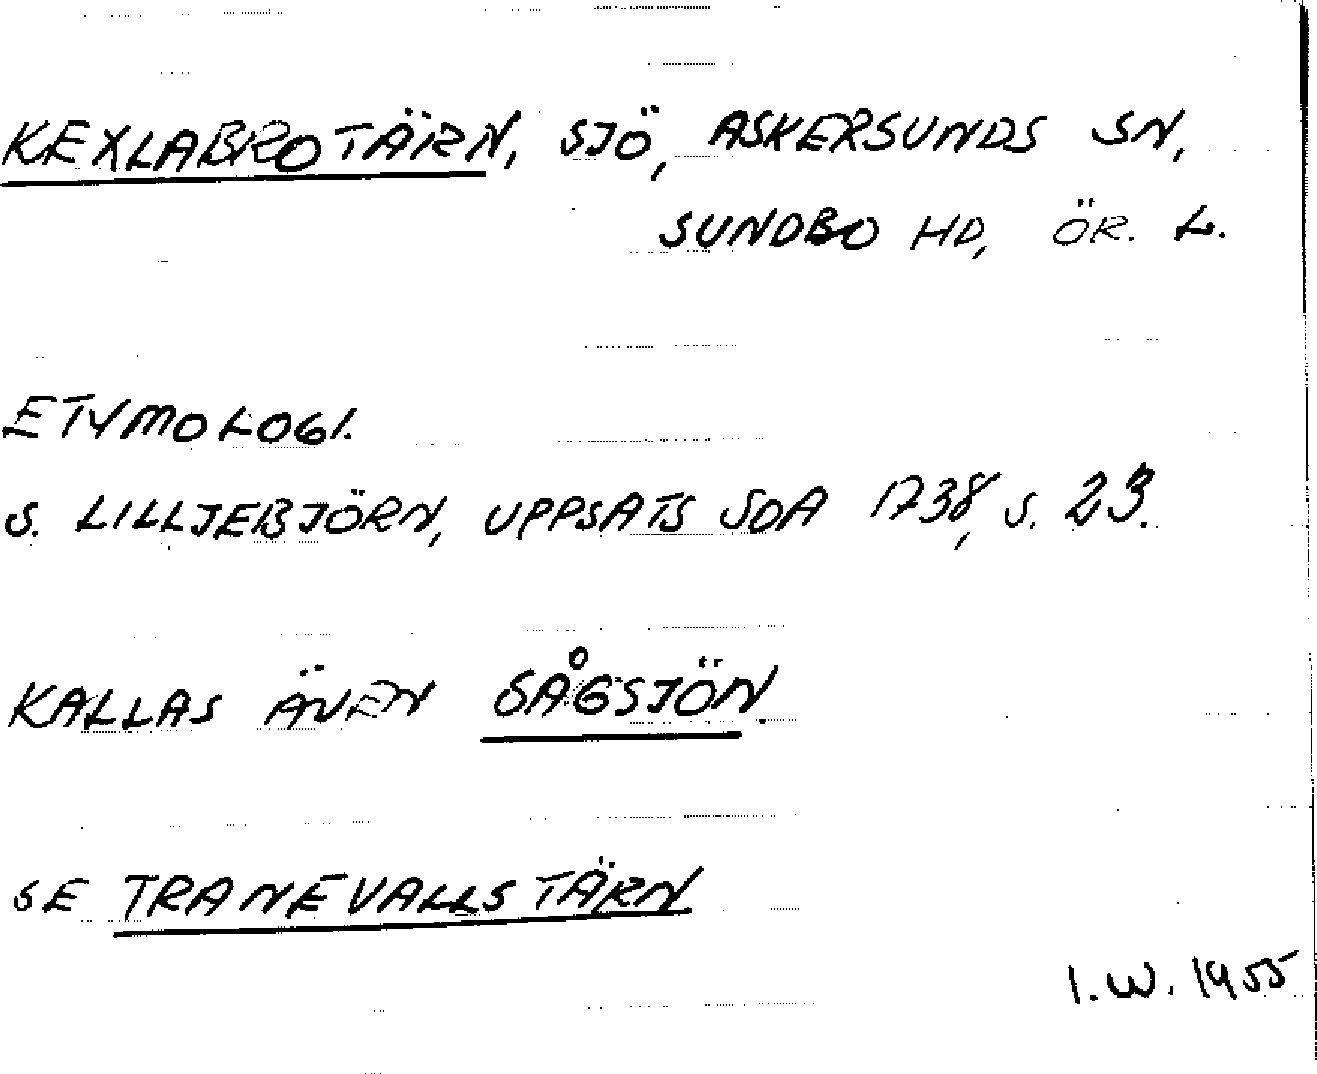 KEXLABROTÄRN, SJÖ, ASKERSUNDS SN,
SUNDBO HD, ÖR. L.
ETYMOLOGI.
S. LILLJEBJÖRN, UPPSATS SOA 1738, S. 23.
KALLAS ÄVEN SÅGSJÖN.
SE TRANEVALLSTÄRN
I.W. 1955